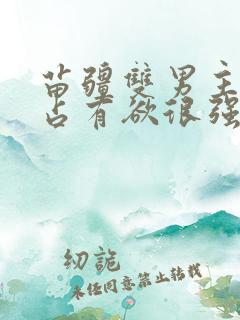 苗疆雙男主
占有欲很强
纫詭
未任同意禁止转载